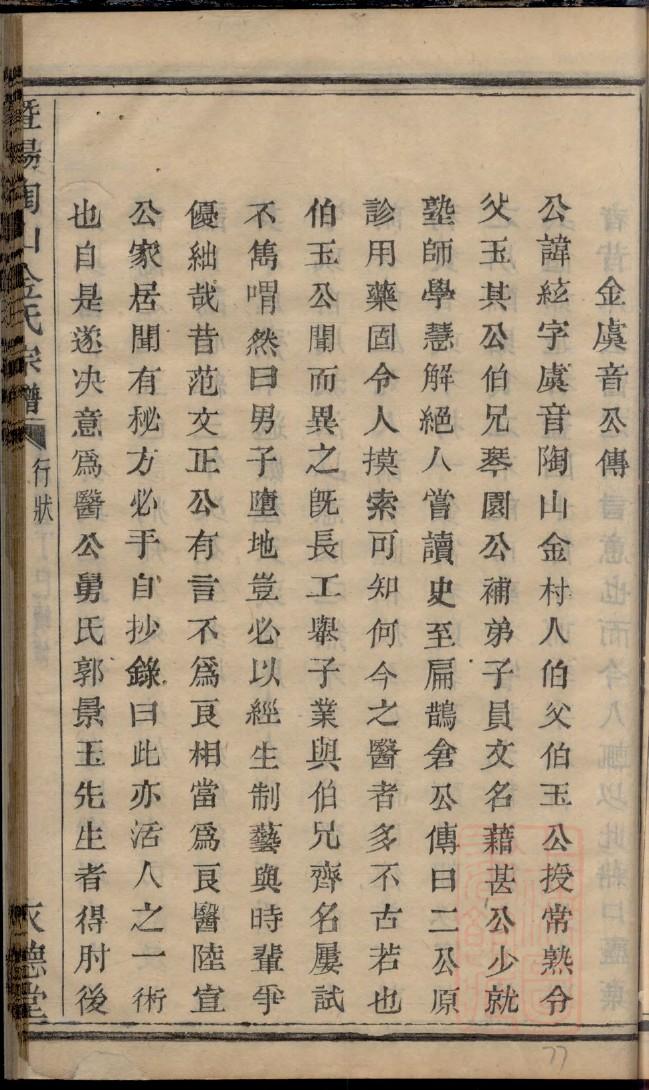 金虞音公傳
公諱絃字虞音陶山金村人伯父伯玉公授常熟令
父玉其公伯兄琴園公補弟子員文名藉甚公少就
塾師學慧解絕人嘗讀史至扁鵲倉公傳曰二公原
診用藥固令人摸索可知何今之醫者多不古若也
伯玉公聞而異之旣長工舉子業與伯兄齊名屢試
不雋喟然曰男子墮地豈必以經生制藝與時輩爭
優絀哉昔范文正公有言不爲良相當爲良醫陸宣
公家居聞有秘方必手自抄錄曰此亦活人之一術
也自是遂决意爲醫公舅氏郭景玉先生者得肘後
暨陽陶山金氏宗譜
行狀
衣德堂
77